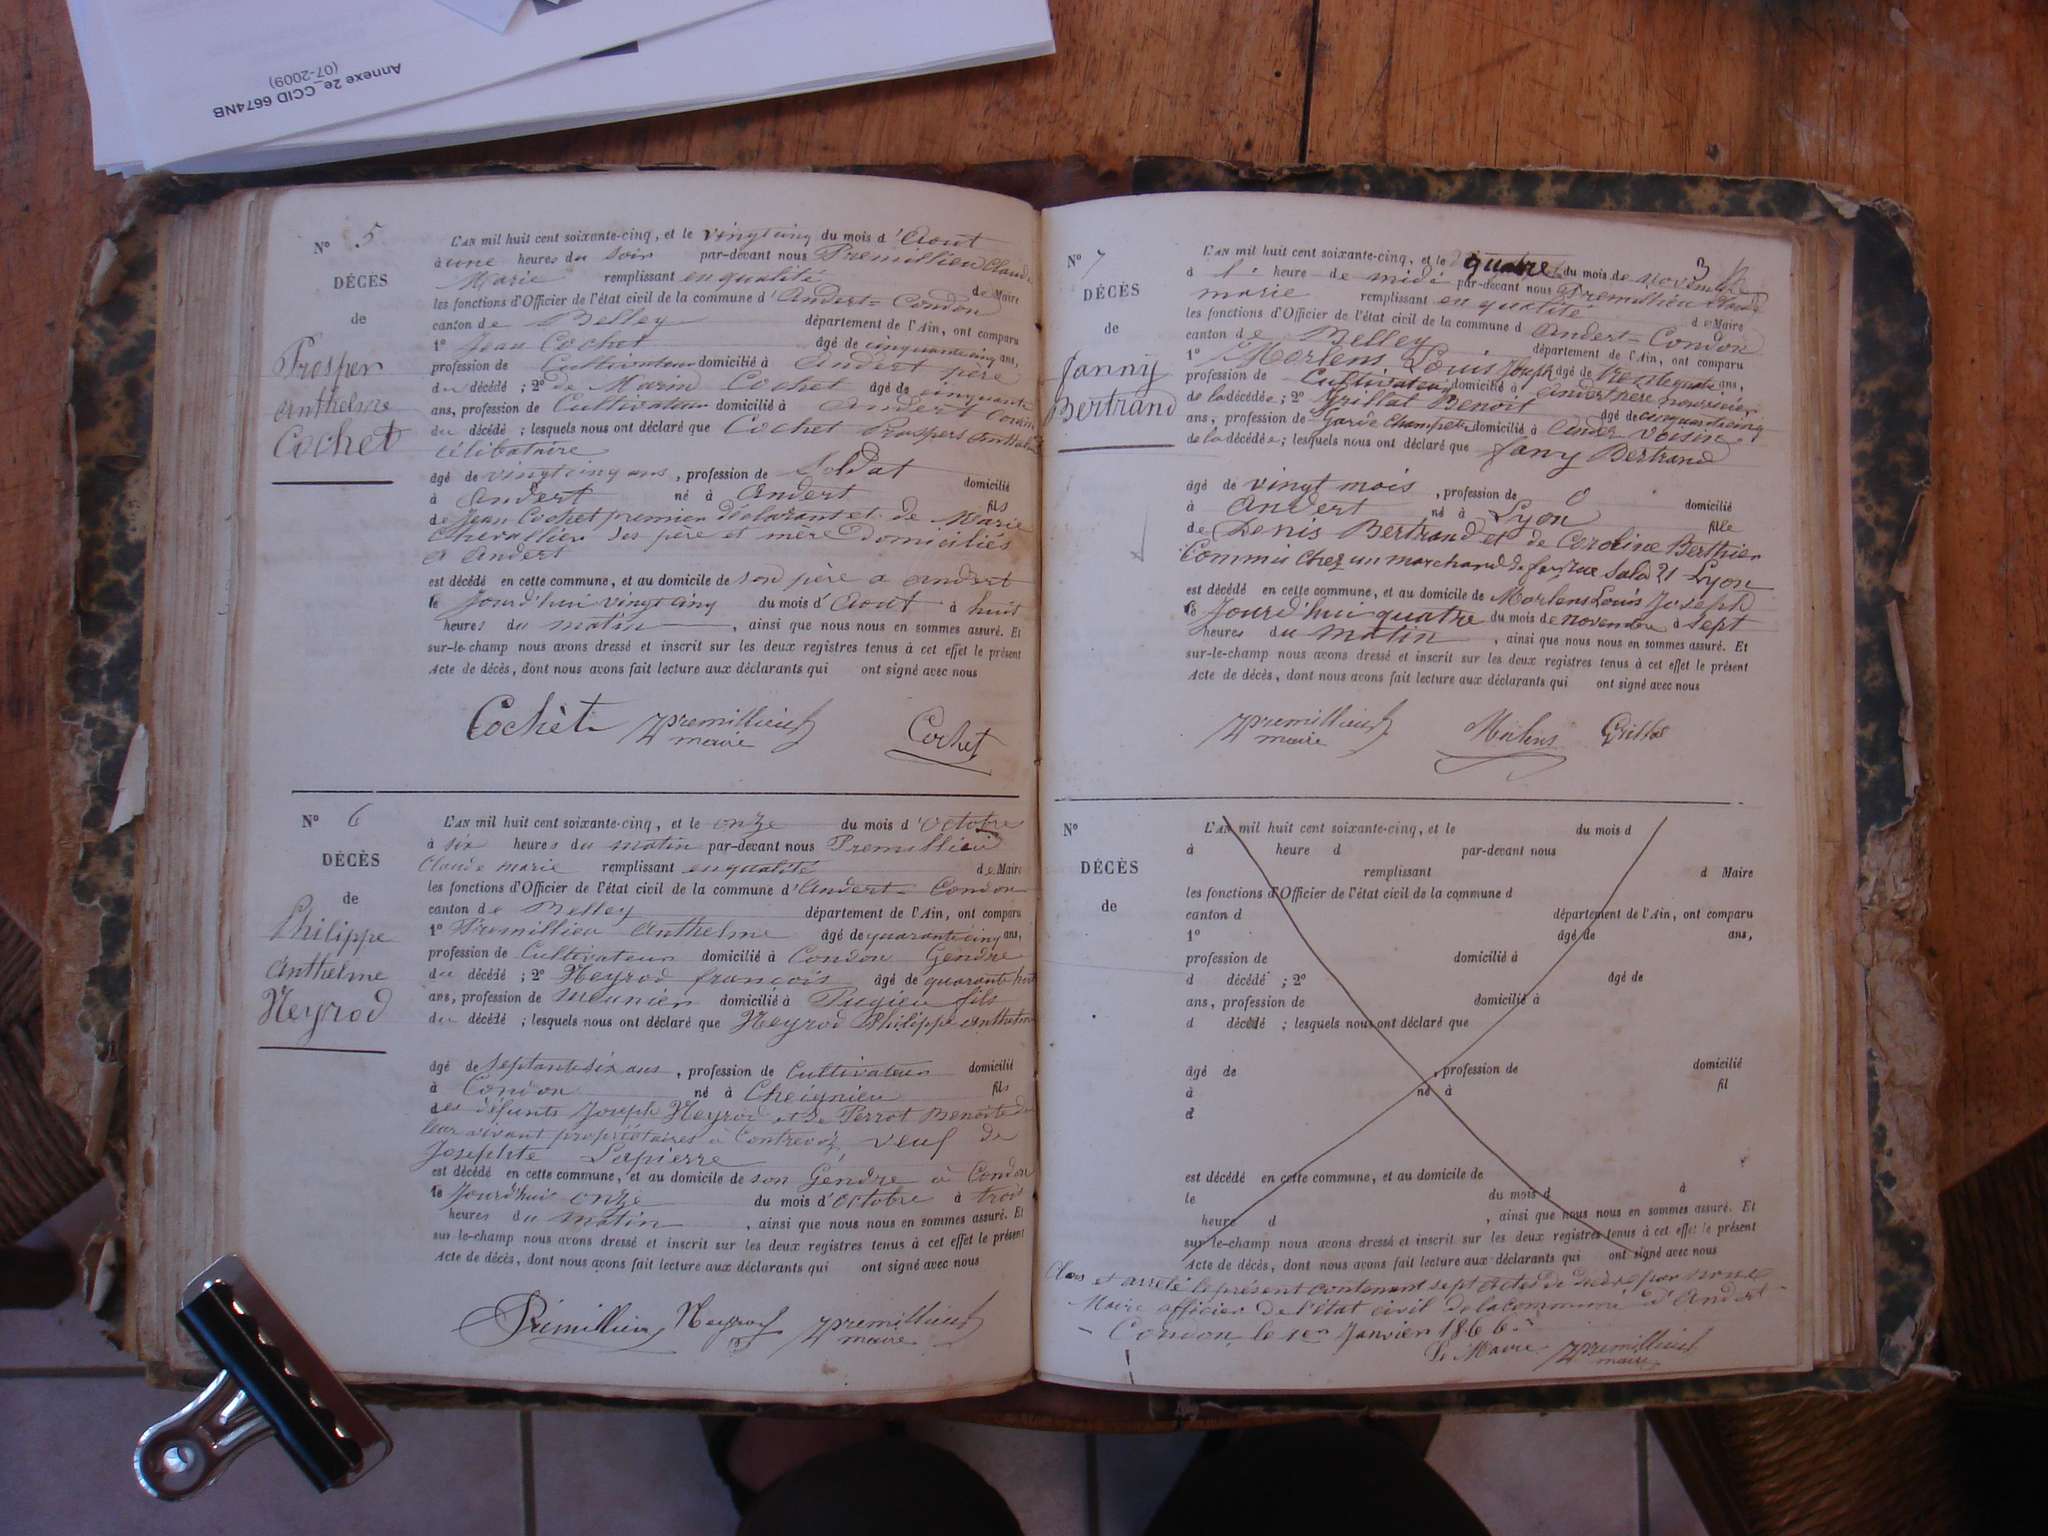 Annexe 2e_CCID 6674NB
(07-2009)
N° 5
DÉCÈS
de
Prosper
Anthelme
Cochet
L'AN mil huit cent soixante-cinq, et le vingtcinq du mois d'Aout
à une heures du soir par-devant nous Premillieu Claude
Marie remplissant en qualité de Maire
les fonctions d'Officier de l'état civil de la commune d'Andert-Condon
canton de Belley département de l'Ain, ont comparu
1° Jean Cochet âgé de cinquantecinq ans,
profession de Cultivateur domicilié à Andert père
du décédé ; 2° de Marin Cochet âgé de cinquante
ans, profession de Cultivateur domicilié à Andert Cousin
du décédé ; lesquels nous ont déclaré que Cochet Prospers Anthelme
Célibataire
âgé de vingtcinq ans, profession de Soldat domicilié
à Andert né à Andert fils
de Jean Cochet premier déclarant et de Marie
Chevallier ses père et mère domiciliés
a Andert
est décédé en cette commune, et au domicile de son père a Andert
le Jourd'hui vingtcinq du mois d'Aout à huit
heures du matin, ainsi que nous nous en sommes assuré. Et
sur-le-champ nous avons dressé et inscrit sur les deux registres tenus à cet effet le présent
Acte de décès, dont nous avons fait lecture aux déclarants qui ont signé avec nous
Cochet Premillieu Cochet
maire
N° 6
DÉCÈS
de
Philippe
Anthelme
Neyrod
L'AN mil huit cent soixante-cinq, et le onze du mois d'Octobre
à six heures du matin par-devant nous Premillieu
Claude marie remplissant en qualité de Maire
les fonctions d'Officier de l'état civil de la commune d'Andert-Condon
canton de Belley département de l'Ain, ont comparu
1° Premillieu Anthelme âgé de quarantecinq ans,
profession de Cultivateur domicilié à Condon Gendre
du décédé ; 2° Neyrod françois âgé de quarante huit
ans, profession de meunier domicilié à Pugieu fils
du décédé ; lesquels nous ont déclaré que Neyrod Philippe Anthelme
âgé de Septantesix ans, profession de Cultivateur domicilié
à Condon né à Cheignieu fils
des défunts Joseph Neyrod et de Perrot Benoite de
leur vivant propriétaires à Contrevoz, veuf de
Josephte Lapierre
est décédé en cette commune, et au domicile de son Gendre à Condon
le Jourd'hui onze du mois d'Octobre à trois
heures du matin, ainsi que nous nous en sommes assuré. Et
sur-le-champ nous avons dressé et inscrit sur les deux registres tenus à cet effet le présent
Acte de décès, dont nous avons fait lecture aux déclarants qui ont signé avec nous
Prémillieu Neyrod Premillieu
maire
3
N° 7
DÉCÈS
de
fanny
Bertrand
L'AN mil huit cent soixante-cinq, et le quatre du mois de novembre
à 1 heure de midi par-devant nous Premillieu Claude
marie remplissant en qualité de Maire
les fonctions d'Officier de l'état civil de la commune d Andert-Condon
canton de Belley département de l'Ain, ont comparu
1° Merlens Louis Joseph âgé de trentequatre ans,
profession de Cultivateur domicilié à Andert père nourricier
de la décédée ; 2° Grillat Benoit âgé de cinquantecinq
ans, profession de Garde Champetre domicilié à Andert Voisin
de la décédée ; lesquels nous ont déclaré que fany Bertrand
âgé de vingt mois, profession de 0 domicilié
à Andert né à Lyon fille
de Denis Bertrand et de Caroline Berthier
Commis chez un marchand de fer, rue Sala 21 Lyon
est décédé en cette commune, et au domicile de Morlens Louis Joseph
le Jourd'hui quatre du mois de novembre à sept
heures du matin, ainsi que nous nous en sommes assuré. Et
sur-le-champ nous avons dressé et inscrit sur les deux registres tenus à cet effet le présent
Acte de décès, dont nous avons fait lecture aux déclarants qui ont signé avec nous
Premillieu Grillat
maire
N°
DÉCÈS
de
L'AN mil huit cent soixante-cinq, et le du mois d
à heure d par-devant nous
remplissant d Maire
les fonctions d'Officier de l'état civil de la commune d
canton d département de l'Ain, ont comparu
1° âgé de ans,
profession de domicilié à
d décédé ; 2° âgé de
ans, profession de domicilié à
d décédé ; lesquels nous ont déclaré que
âgé de , profession de domicilié
à né à fil
d
est décédé en cette commune, et au domicile de
le du mois d à
heure d , ainsi que nous nous en sommes assuré. Et
sur-le-champ nous avons dressé et inscrit sur les deux registres tenus à cet effet le présent
Acte de décès, dont nous avons fait lecture aux déclarants qui ont signé avec nous
Clos et arrêté le présent contenant sept actes de décès par nous
Maire officier de l'état civil de la commune d'Andert
- Condon, le 1er Janvier 1866
Le Maire Premillieu
maire